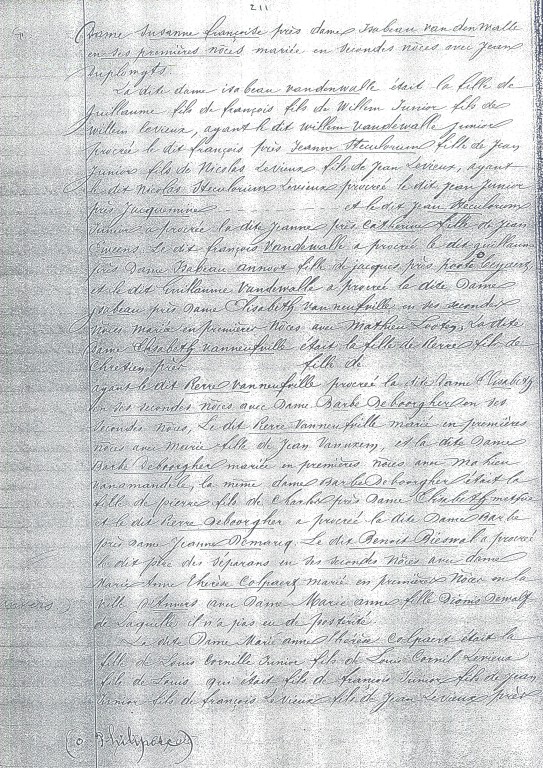 211
Dame Susanne françoise près dame Isabeau van den Walle
en ses premières nôces mariée en secondes nôces avec Jean
La dite dame isabeau vandenwalle était la fille de
guillaume fils de françois fils de Willem Junior fils de
willem Levieux, ayant le dit willem vandewalle junior
procréé le dit françois près Jeanne Steculorum fille de Jean
Junior fils de Nicolas Levieux fils de Jean Levieux, ayant
le dit Nicolas Steculorum Levieux procréé le dit jean Junior
près Jacquemine et le dit Jean Steculorum
Junior a procréé la dite Jeanne près Catherine fille de Jean
Le dit françois Vandewalle a procréé le dit guillaume
près Dame Isabeau annoot fille de jacques près
et le dit Guillaume Vandewalle a procréé la dite Dame
ysabeau près Dame Elisabeth vanneufville en ses secondes
nôces, marié en premières nôces avec Mathieu Lootz, La dite
dame Elisabeth vanneufville était la fille de Pierre fils de
Chrétien près fille de
ayant le dit Pierre vanneufville procréé la dite Dame Elisabeth
en ses secondes nôces avec Dame Barbe Deboorgher en ses
secondes nôces, Le dit Pierre Vanneufville marié en premières
nôces avec Marie fille de Jean Vanuxem, et la dite Dame
Barbe Deboorgher mariée en premières nôces avec Mahieu
vanamandele, la même dame Barbe Deboorgher était la
fille de pierre fils de Charles près Dame Elisabeth
et le dit Pierre Deboorgher a procréé la dite Dame Barbe
près Dame Jeanne Demarcq. Le dit Benoit Bieswal a procréé
le dit père des Séparans en ses secondes Nôces avec dame
Marie Anne thérèse Colpaert, marié en premières Nôces en la
ville d'Anvers avec Dame Marie anne fille Dionis Dewolf
de Laquelle il n'a pas eu de postérité
La dite Dame Marie anne Thérèse Colpaert était la
fille de Louis Cornille Junior fils de Louis Cornil Levieux
fils de Louis qui était fils de françois Junior fils de jean
Junior fils de françois Levieux fils de Jean Levieux près